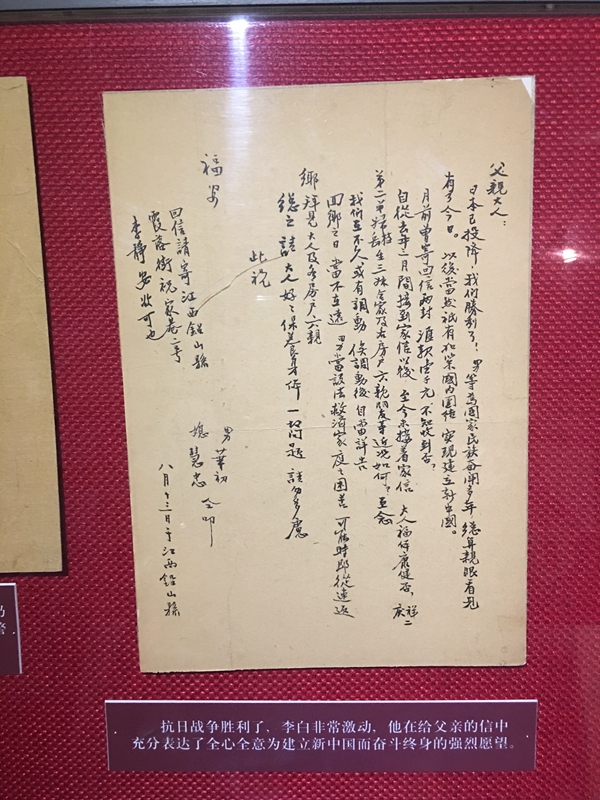 父親大人：
日本已投降，我們勝利了！男等為國家民族奮鬥多年 總算親眼看見
有了今日。以後當然祇有和策國內團结 实现建立新中國。
月前曾寄回信兩封 滙款壹千元 不知收到否？
自從去年二月間接到家信以後 至今未接着家信 大人福体康健否，
第二弟 三妹全家及各房戶六親朋友等近况如何？至念
我們在不久或有調動 俟調動後自當詳告
回鄉之日 當不在遠 男當設法救濟家庭之困苦 可能時即從速返
鄉 拜見大人及各房戶六親
總之 請大人好之保养身体 一切問題 請勿多慮
此祝
福安
男 華初
媳 慧忠 仝叩
八月廿三日于江西鉛山縣
回信請寄江西鉛山縣
霞落街祝家巷二号
李靜安收可也
抗日战争胜利了，李白非常激动，他在给父亲的信中
充分表达了全心全意为建立新中国而奋斗终身的强烈愿望。